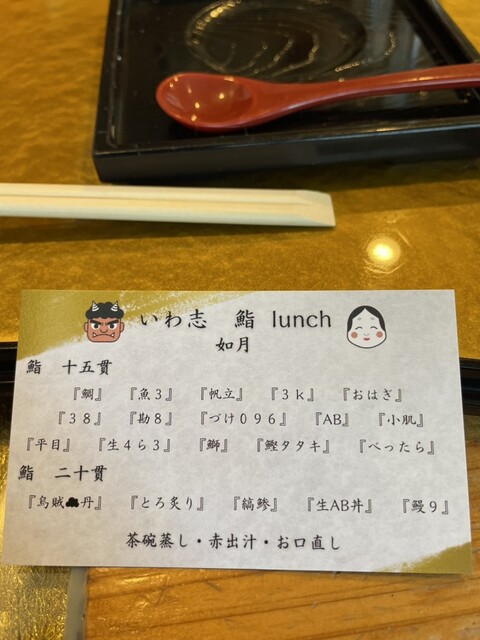 いわ志 鮨 lunch
如月
鮨 十五貫
『鯛』 『魚3』 『帆立』 『3k』 『おはぎ』
『38』 『勘8』 『づけ096』 『AB』 『小肌』
『平目』 『生4ら3』 『鰤』 『鰹タタキ』 『べったら』
鮨 二十貫
『烏賊☁丹』 『とろ炙り』 『縞鯵』 『生AB丼』 『鰻9』
茶碗蒸し・赤出汁・お口直し